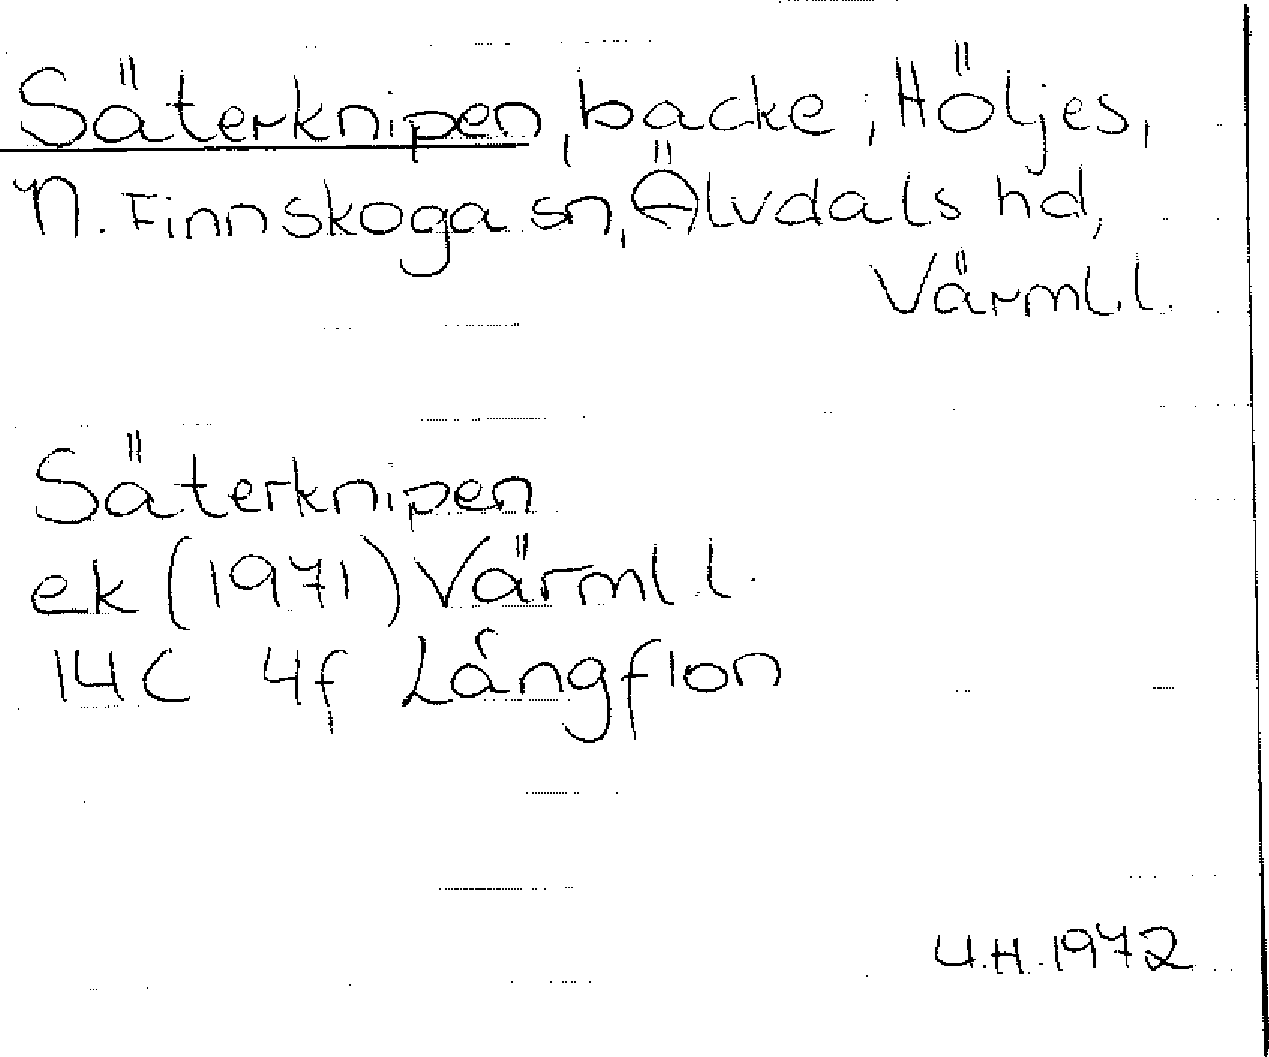 Säterknipen, backe, Höljes,
N. Finnskoga sn, Älvdals hd,
Värml. l.
Säterknipen
ek (1971) Värml l.
14C 4f Långflon
U.H. 1972